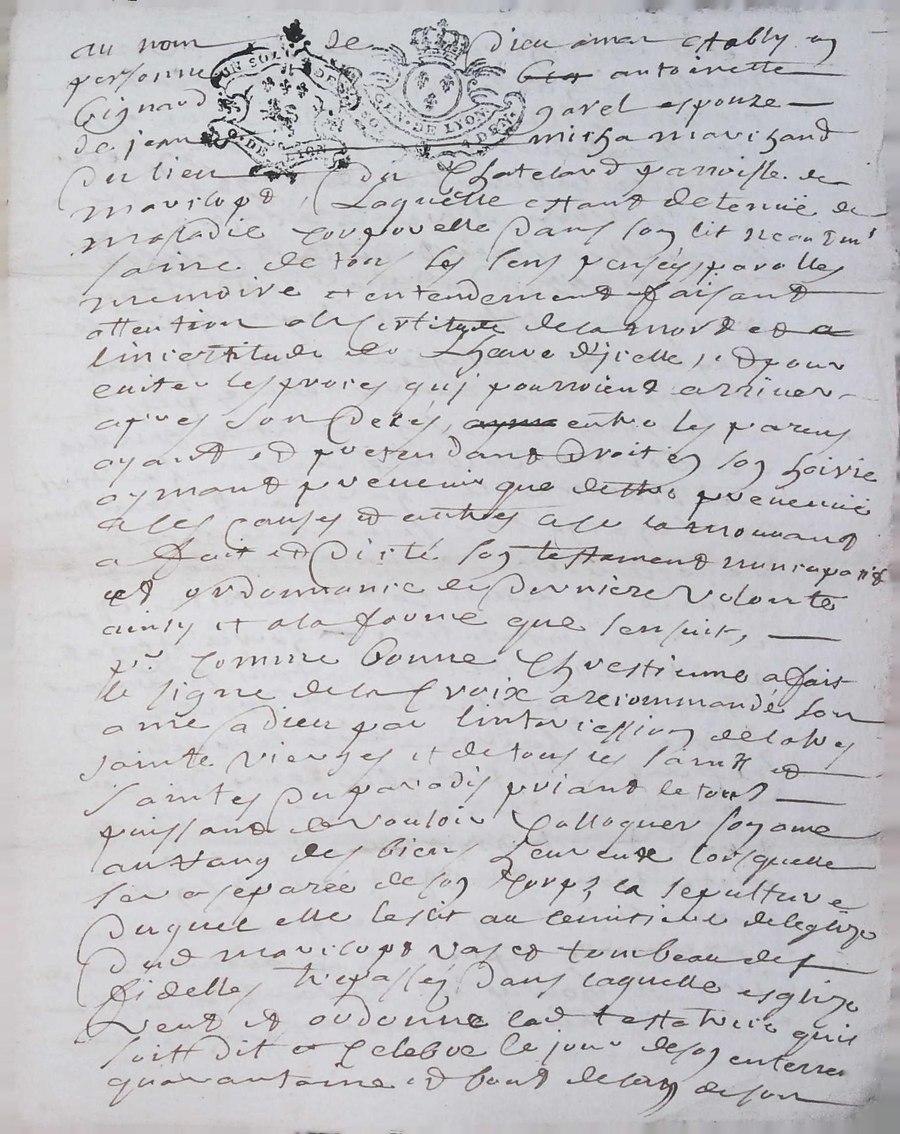 au nom de Dieu amen establÿ en
personne antoinette
Gignaud garel espouze
de jean micha marchand
UN SOL DE
G. DE LYON
GEN. DE LYON
Du lieu Du Chatelard parroisse de
marilopt, Laquelle estant detenüe de
maladie corporelle Dans son lit neantms
saine de tous les sens pensées parolles
memoire et entendement faisant
attention a la certitude de la mort et a
lincertitude de Lheure dÿcelle, et pour
eviter les proces quj pourroient arriver
apres son Deces, entre les parens
ayant et pretendant Droit en son hoirie
aymant prevenir que destre prevenüe
a ses causes et autres a ce la mouvant
a fait et Dicté son testament nuncupatif
et ordonnance de Derniere Volonté
ainsy et a la forme que sensuit,
pr. Comme bonne Chrestienne a fait
le signe de la Croix a recommandé son
ame a dieu par lintercession de la tres
sainte Vierges et de tous les saints et
saintes Du paradis priant le tout
puissant de vouloir Colloquer son ame
au Rang des biens heureux lorsquelle
sera separée de son Corps, la sepulture
Duquel elle Eslit au cemitiere de leglize
Dud marilopt Vas et tombeau des
fidelles trepassés, Dans laquelle esglize
Veut et ordonne lad testatrice quil
soitt dit et Celebré le jour de son enterre
quarantaine et bout de lan de son